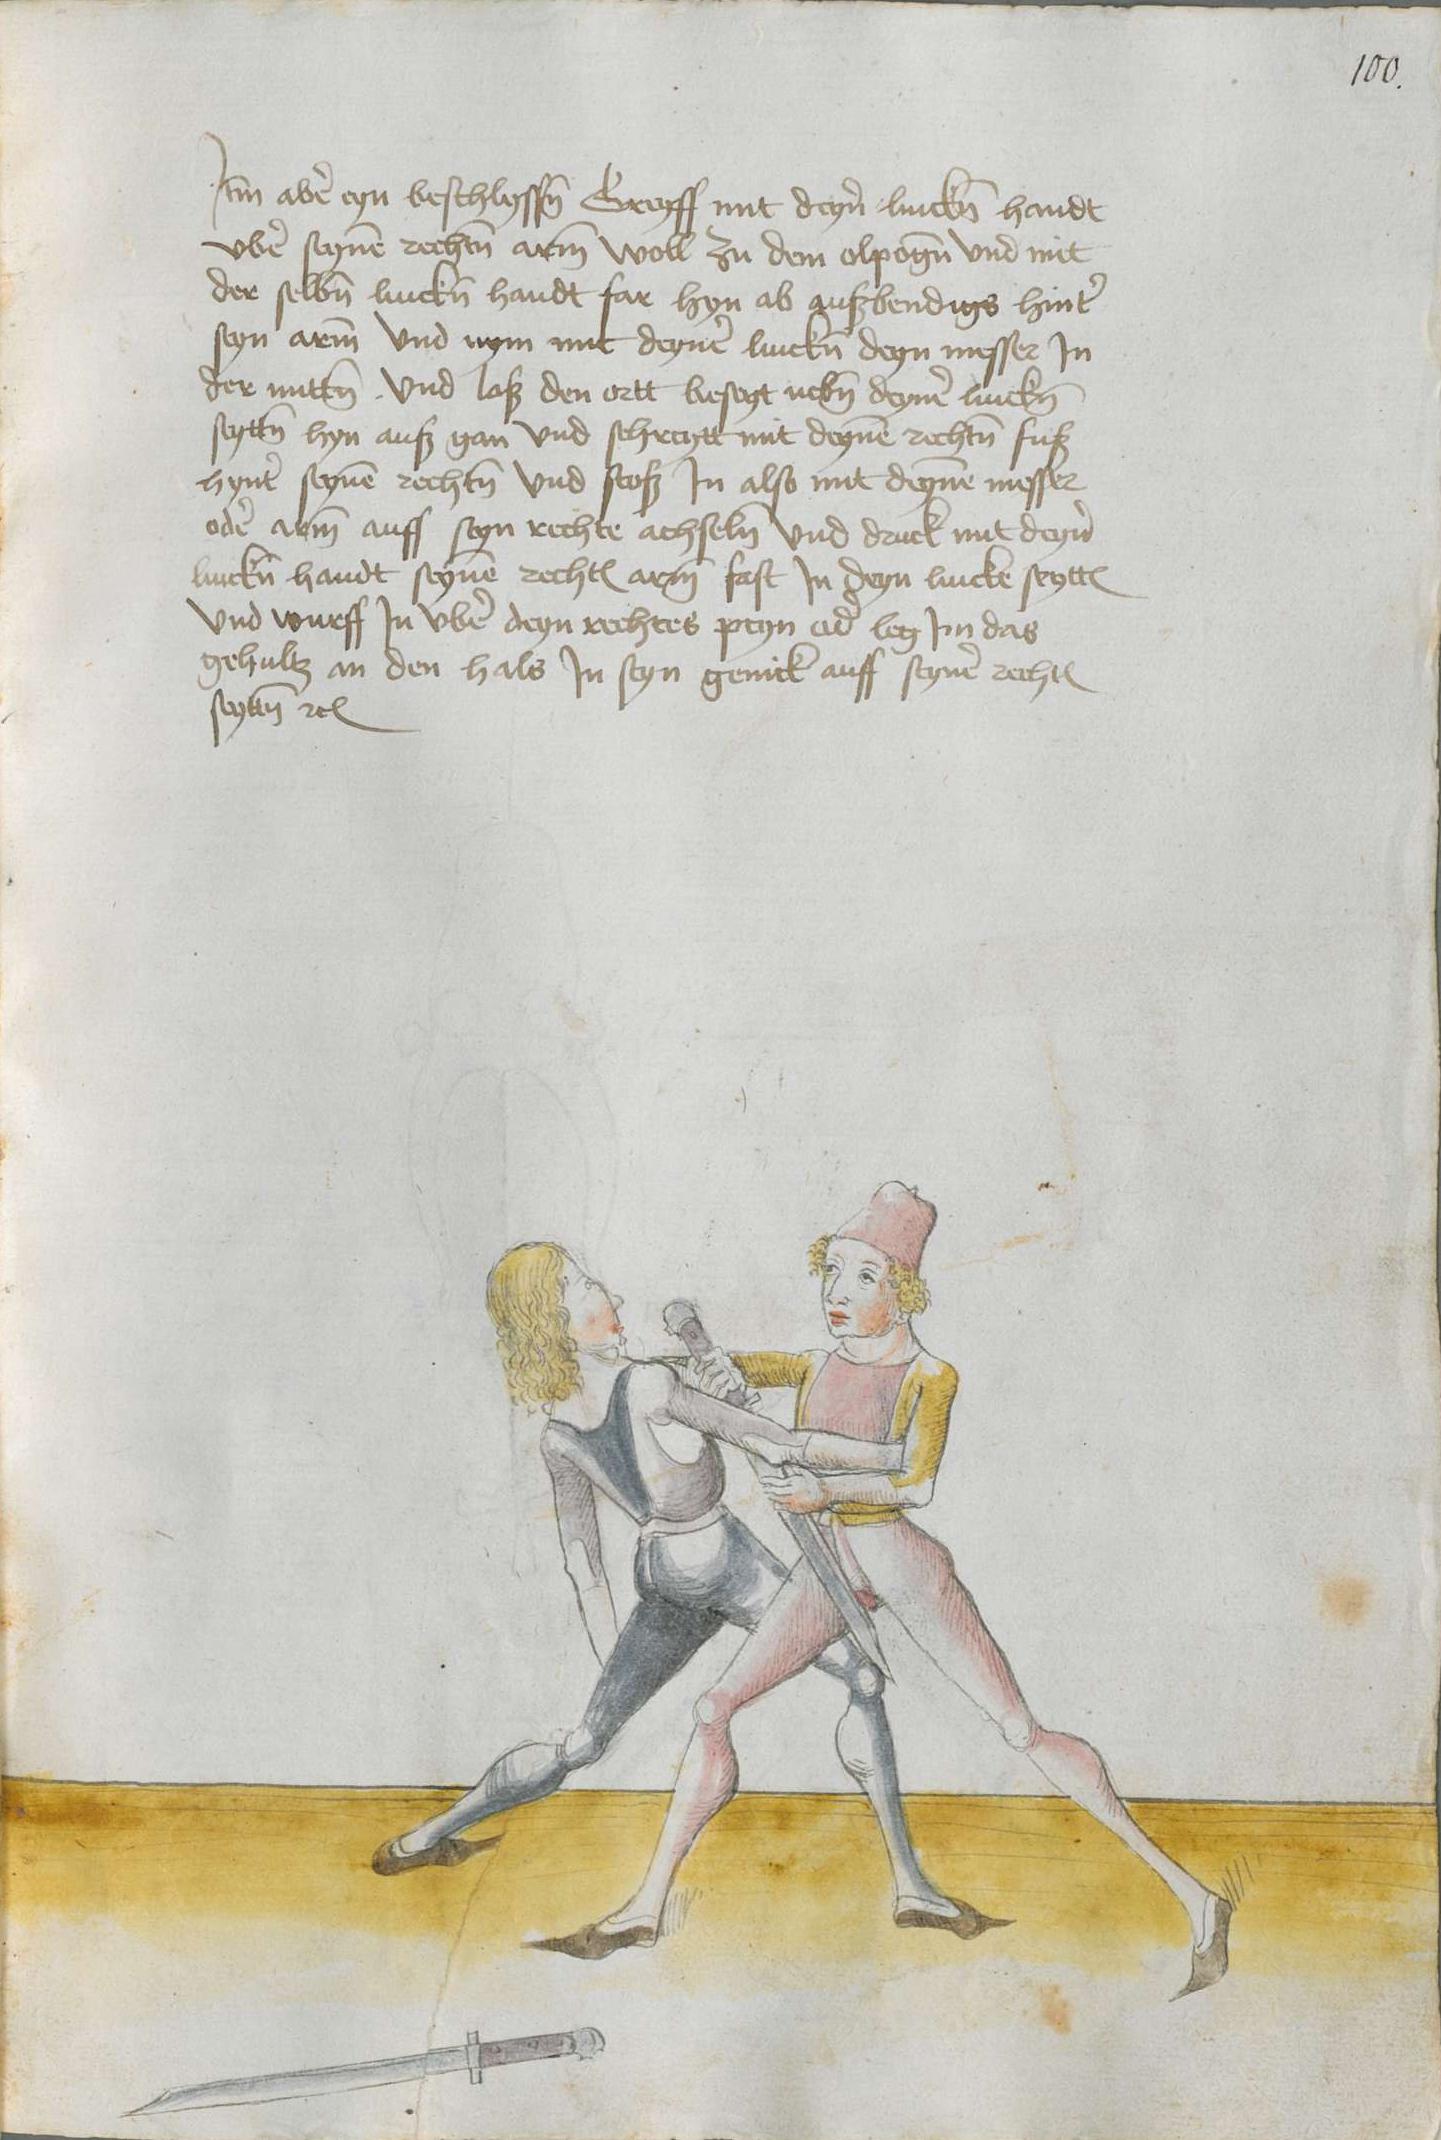 100.
Itm̄ abe͂r eyn beschlyssn̄ Greyff mit deyn͂ linckn̄ handt
vbe͂ seynē rechtn̄ arm̄ woll zu dem olpogn̄ vnd mit
der selbn̄ linckn̄ handt far hyn ab außbendigs hint͂
seyn arm̄ vnd nym mit deyne͂ linckn̄ deyn messer In
der mittn̄ . Vnd laß den ortt beseyt nebn̄ deyne͂ linckn̄
seyttn̄ hyn auß gan vnd schreytt mit deynē rechtn̄ fuß
hynt͂ seynē rechtn̄ vnd stoß In also mit deynē messer
ode͂ arm̄ auff seyn rechte achseln̄ vnd druck mit deyn͂
linckn̄ handt seynē rechtn̄ arm̄ fast In deyn lincke seyttn̄
vnd wurff In vbe͂ deyn rechtes peyn od͂ leg Im das
gehultz an den hals In seyn genick auff seyne͂ rechtn̄
seyttn̄ ꝛc